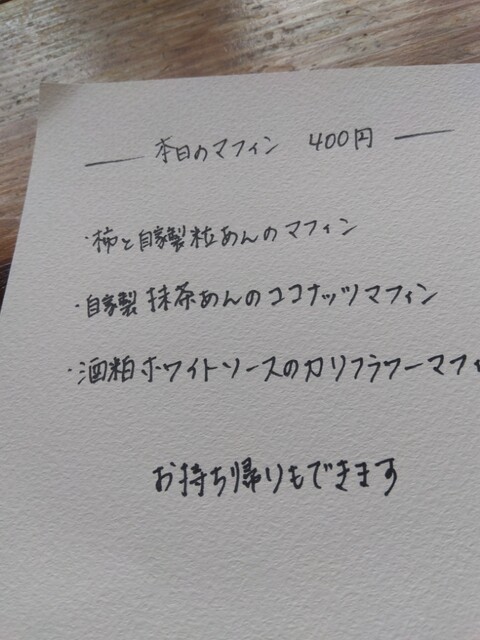 本日のマフィン 400円
・柿と自家製粒あんのマフィン
・自家製抹茶あんのココナッツマフィン
・酒粕ホワイトソースのカリフラワーマフィ
お持ち帰りもできます